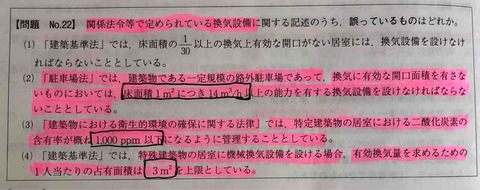 【問題 No.22】 関係法令等で定められている換気設備に関する記述のうち、誤っているものはどれか。
(1) 「建築基準法」では、床面積の1/30以上の換気上有効な開口がない居室には、換気設備を設けなけ
ればならないこととしている。
(2) 「駐車場法」では、建築物である一定規模の路外駐車場であって、換気に有効な開口面積を有さな
いものにおいては、床面積1m²につき14m³/h以上の能力を有する換気設備を設けなければならな
いこととしている。
(3) 「建築物における衛生的環境の確保に関する法律」では、特定建築物の居室における二酸化炭素の
含有率が概ね1,000 ppm以下になるように管理することとしている。
(4) 「建築基準法」では、特殊建築物の居室に機械換気設備を設ける場合、有効換気量を求めるための
1人当たりの占有面積は3m²を上限としている。